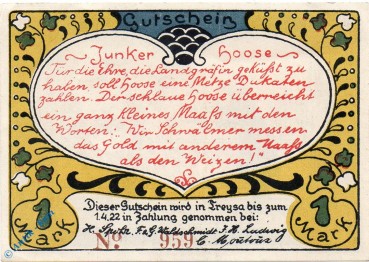 Gutschein
Junker Hoose
Für die Ehre, die Landgräfin geküßt zu
haben, soll Hoose eine Metze Dukaten
zahlen. Der schlaue Hoose überreicht
ein ganz kleines Maaß mit den
Worten: "Wir Schwälmer messen
das Gold mit anderem Maaß
als den Weizen!"
1 Mark
1 Mark
Dieser Gutschein wird in Treysa bis zum
1.4.22 in Zahlung genommen bei:
F. & G. Waldschmidt J. H. Ludwig
No. 959